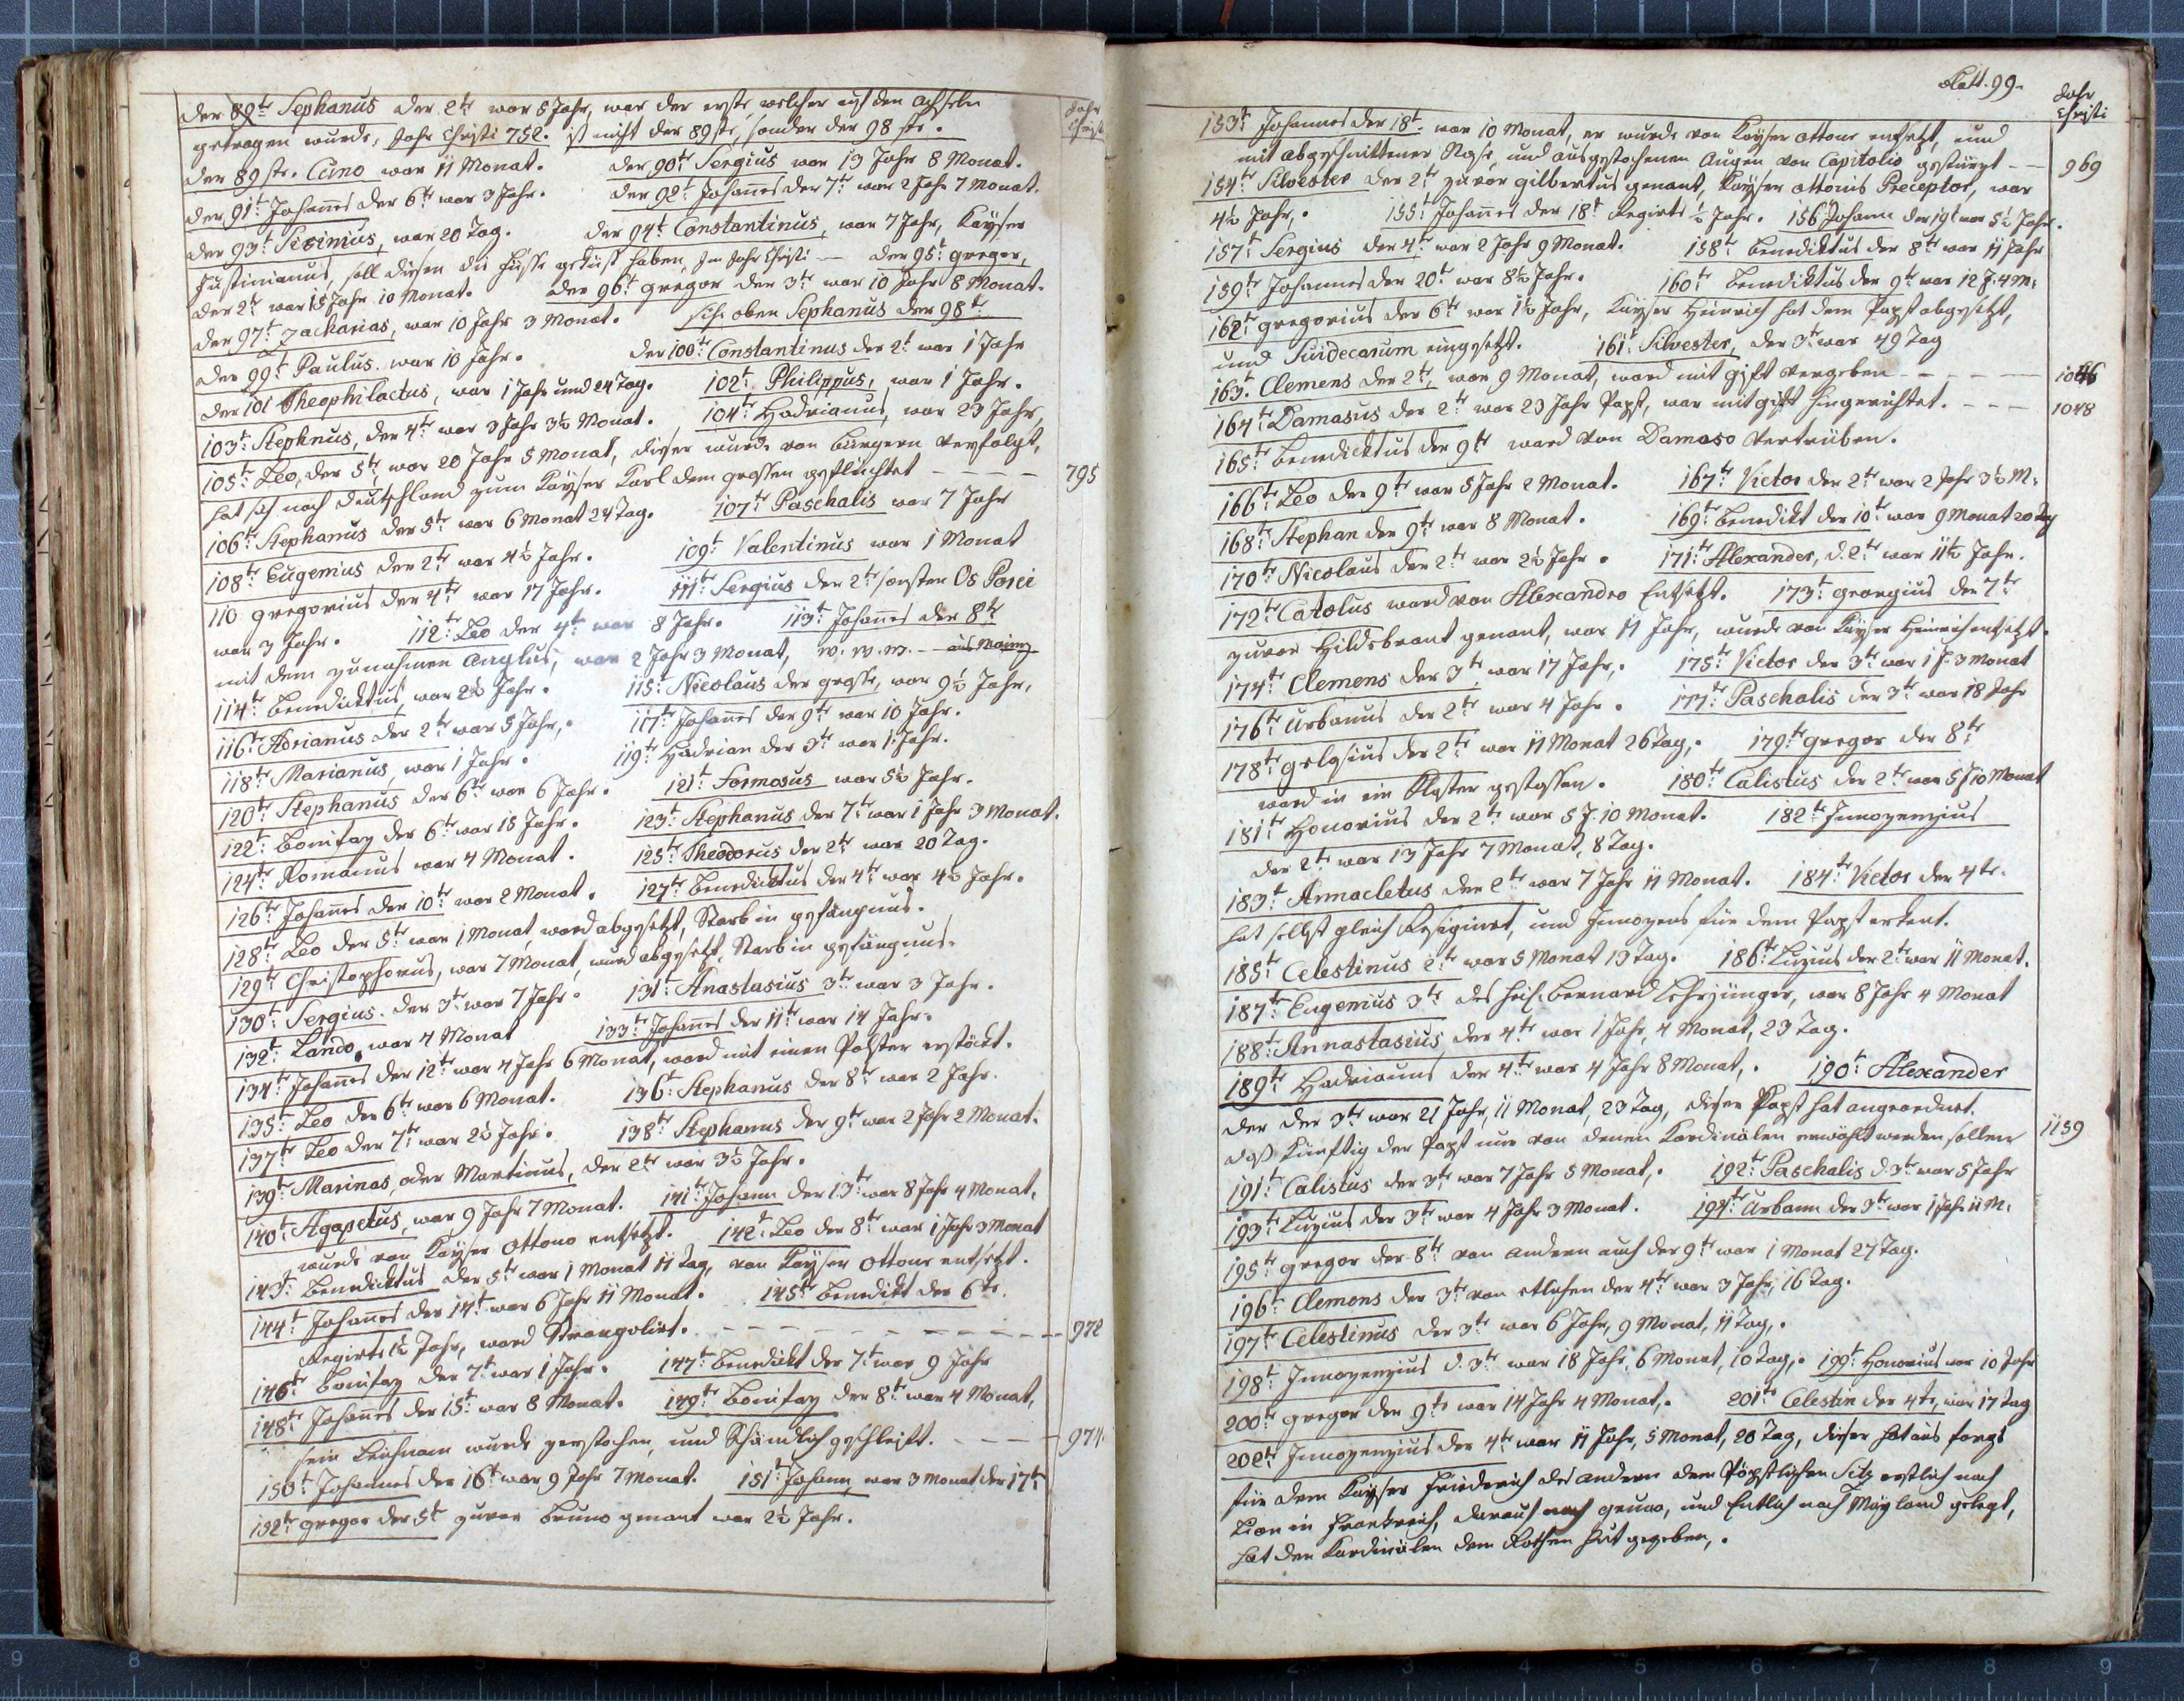 Jahr
Christi
der 89te Sephanus der 2te war 5 Jahr, war der erste welcher auf den Achseln
getragen wurde, Jahr Christi 752. ist nicht der 89ste, sonder der 98ste.
der 89ste. Cuno war 11 Monat. der 90te Sergius war 13 Jahr 8 Monat.
der 91t Johannes der 6te war 3 Jahr. der 92t Johannes der 7te war 2 Jahr 7 Monat.
der 93t Sisinius, war 20 Tag. der 94t Constantinus, war 7 Jahr, Kayser
Justinianus, soll diesen die Füsse geküst haben, im Jahr Christi — der 95t gregor,
der 2te war 15 Jahr 10 Monat. der 96t gregor der 3te war 10 Jahr 8 Monat.
der 97t Zacharias, war 10 Jahr 3 Monat. sihe oben Sephanus der 98te
der 99t Paulus. war 10 Jahr. der 100te Constantinus der 2t war 1 Jahr
der 101 Theophilactus, war 1 Jahr und 24 Tag. 102t Philippus, war 1 Jahr.
103t Stephnus, der 4te war 3 Jahr 3½ Monat. 104te Hadrianus, war 23 Jahr,
105te Leo, der 5te war 20 Jahr 5 Monat, dieser wurde von Burgern verfolgt,
hat sich nach deutschland zum Kayser Karl dem grossen geflüchtet — — — 795
106te Stephanus der 5te war 6 Monat 24 Tag. 107te Paschalis war 7 Jahr
108te Eugenius der 2te war 4½ Jahr. 109t Valentinus war 1 Monat
110 gregorius der 4te war 17 Jahr. 111te Sergius der 2te sonsten Os Porci
war 3 Jahr. 112te Leo der 4te war 8 Jahr. 113t Johannes der 8te
mit dem zunahmen Anglus, war 2 Jahr 3 Monat, w. w. m. — aus Mainz
114te Benedicktus, war 2½ Jahr. 115t Nicolaus der grosse, war 9½ Jahr,
116te Adrianus der 2te war 5 Jahr,. 117te Johannes der 9te war 10 Jahr.
118te Marianus, war 1 Jahr. 119te Hadrian der 3te war 1 Jahr.
120te Stephanus der 6te war 6 Jahr. 121t Formosus war 5½ Jahr.
122te Bonifaz der 6te war 15 Jahr. 123t Stephanus der 7te war 1 Jahr 3 Monat.
124te Romanus war 4 Monat. 125te Theodorus der 2te war 20 Tag.
126te Johannes der 10te war 2 Monat. 127te Benedicktus der 4te war 4½ Jahr.
128te Leo der 5te war 1 Monat, ward abgesetzt, Starb in gefängnus.
129te Christophorus, war 7 Monat, wurd abgesetzt, Starb in gefängnus.
130t Sergius. der 3te war 7 Jahr. 131t Anastasius 3te war 3 Jahr.
132t Lando, war 4 Monat 133te Johannes der 11te war 14 Jahr.
134te Johannes der 12te war 4 Jahr 6 Monat, ward mit einen Polster erstöckt.
135te Leo der 6te war 6 Monat. 136t Stephanus der 8te war 2 Jahr.
137te Leo der 7te war 2½ Jahr. 138te Stephanus der 9te war 2 Jahr 2 Monat.
139t Marinas, oder Martinus, der 2te war 3½ Jahr.
140t Agapetus, war 9 Jahr 7 Monat. 141te Johann der 13te war 8 Jahr 4 Monat,
wurde von Kayser Ottono entsetzt. 142t Leo der 8te war 1 Jahr 3 Monat
143t Benedicktus der 5te war 1 Monat 11 Tag, von Kayser Ottone entsetzt.
144t Johannes der 14t war 6 Jahr 11 Monat. 145te Benedikt der 6te.
Regirte 1½ Jahr, ward Strangolirt. — — — 972
146te Bonifaz der 7t war 1 Jahr. 147te Benedickt der 7t war 9 Jahr
148te Johannes der 15t war 8 Monat. 149te Bonifaz der 8te war 4 Monat,
sein Leichnam wurde zerstochen, und Schändlich geschleift. — — — 974.
150t Johannes der 16t war 9 Jahr 7 Monat. 151t Johann, war 3 Monat der 17te
152te gregor der 5t zuvor Bruno genant war 2½ Jahr.
Blatt. 99.
Jahr
Christi
153t Johannes der 18t. war 10 Monat, er wurde von Kayser Ottone entsetzt, und
mit abgeschnittener Nase, und ausgestochenen Augen von Capitolio gestürzt — — 969
154te Silvester der 2te zuvor gilbertus genant, Kayser Ottonis Preceptor, war
4½ Jahr,. 155t Johannes der 18t Regirte ½ Jahr. 156 Johann der 19t war 5½ Jahr.
157t Sergius der 4t war 2 Jahr 9 Monat. 158te Benedicktus der 8te war 11 Jahr
159te Johannes der 20te war 8½ Jahr. 160te Benedicktus der 9te war 12 J. 4 M.
162te gregorius der 6te war 1½ Jahr, Kayser Heinrich hat dem Papst abgesetzt,
und Suidecarum eingesetzt. 161t Silvester, der 3te war 49 Tag
163t. Clemens der 2te, war 9 Monat, ward mit gift vergeben — — — — 1046
164te Damasus der 2te war 23 Jahr Papst, war mit gift hingerichtet. — — — 1048
165te Benedicktus der 9te ward von Damaso vertrüben.
166te Leo der 9te war 5 Jahr 2 Monat. 167te Victor der 2te war 2 Jahr 3½ M.
168te Stephan der 9te war 8 Monat. 169te Benedikt der 10te war 9 Monat 20 Tag
170te Nicolaus der 2te war 2½ Jahr. 171te Alexander, d. 2te war 11½ Jahr.
172te Catolus ward von Alexandro Entsetzt. 173te georgius der 7te
zuvor Hildebrant genant, war 11 Jahr, wurde von Kayser Heinrich entsetzt.
174te Clemens der 3t war 17 Jahr,. 175te Victor der 3te war 1 J. 3 Monat
176te Urbanus der 2te war 4 Jahr. 177te Paschalis der 3te war 18 Jahr
178te gelasius der 2te war 11 Monat 26 Tag,. 179te gregor der 8te
ward in ein Kloster gestossen. 180te Calistus der 2te war 5 J 10 Monat
181te Honorius der 2te war 5 J. 10 Monat. 182te Innozenzius
der 2te war 13 Jahr 7 Monat, 8 Tag.
183t Annacletus der 2te war 7 Jahr 11 Monat. 184te Victor der 4te.
hat selbst gleich Resiginrt, und Innozens für dem Papst erkent.
185te Celestinus 2te war 5 Monat 13 Tag. 186te Luzius der 2te war 11 Monat.
187te Eugenius 3te des heil. Bernard Lehrjünger, war 8 Jahr 4 Monat
188te Annastasius der 4te war 1 Jahr, 4 Monat, 23 Tag.
189te Hadrianus der 4te war 4 Jahr 8 Monat,. 190t Alexander
der der 3te war 21 Jahr, 11 Monat, 23 Tag, dieser Papst hat angeordnet.
daß künftig der Papst nur von denen Kardinälen erwählt werden sollen 1159
191t Calistus der 3te war 7 Jahr 5 Monat,. 192te Paschalis d. 3te war 5 Jahr
193te Luzius der 3te war 4 Jahr 3 Monat. 194te Urbann der 3te war 1 Jahr 11 M.
195te gregor der 8te von andern auch der 9te war 1 Monat 27 Tag.
196te Clemens der 3te von etlichen der 4te war 3 Jahr, 16 Tag.
197te Celestinus der 3te war 6 Jahr, 9 Monat, 11 Tag,.
198t Innozenzius d. 3te war 18 Jahr, 6 Monat, 10 Tag,. 199t Honorius war 10 Jahr
200te gregor der 9te war 14 Jahr 4 Monat,. 201te Celestin der 4te, war 17 Tag
202te Innozenzius der 4te war 11 Jahr, 5 Monat, 20 Tag, dieser hat aus forcht
für dem Kayser Friederich des andern den Päpstlichen Sitz erstlich nach
Lion in Frankreich, darauf nach genua, und Entlich nach Mayland gelegt,
hat den Kardinälen den Rothen Hut gegeben,.